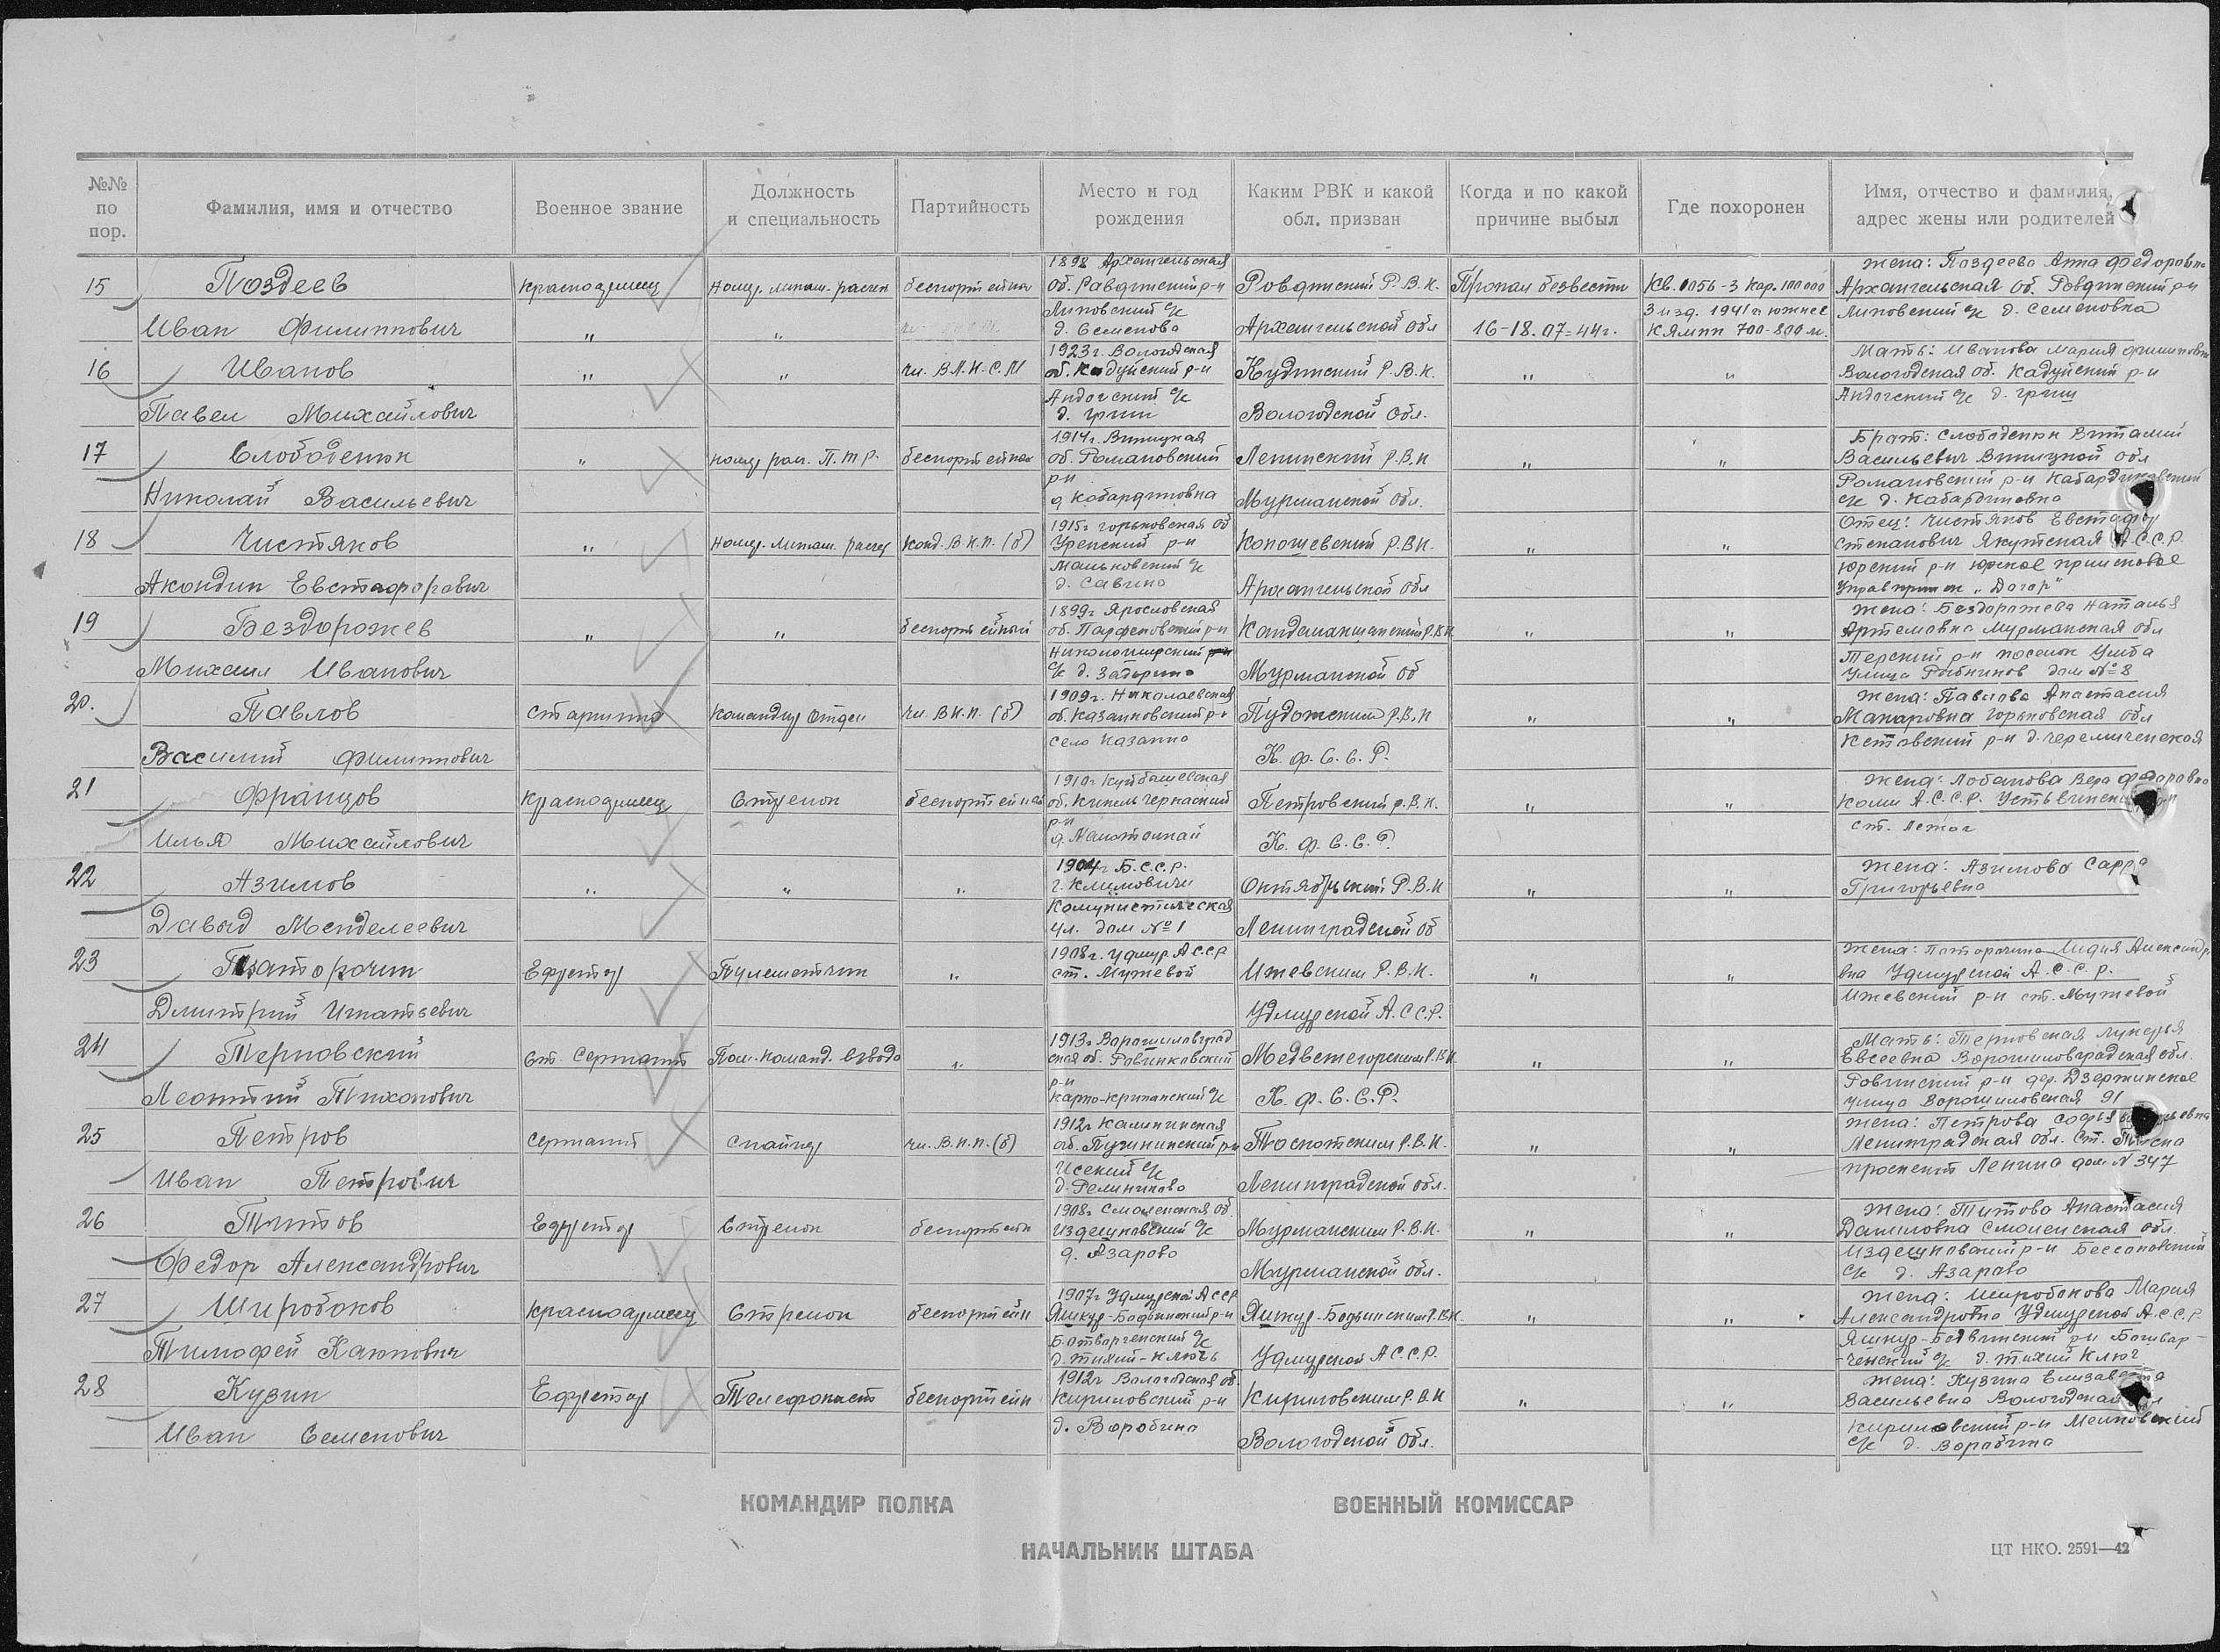 №№ по пор.
Фамилия, имя и отчество
Военное звание
Должность и специальность
Партийность
Место и год рождения
Каким РВК и какой обл. призван
Когда и по какой причине выбыл
Где похоронен
Имя, отчество и фамилия, адрес жены или родителей
15
Поздеев
Иван Филиппович
красноармеец
беспартейн
1898 Архангельская
об. Равдинский р-н
Липовский с/с
д. Семенова
Ровдинский Р.В.К.
Архангельской обл
Пропал безвести
16-18.07-44г.
Кв. 1056-3 Кар. 100000
3 изд. 1941г. южнее
700-800 м.
жена: Поздеева Анна Федоровн
Архангельская об. Ровдинский р-н
Липовский с/с д. Семеновка
16
Иванов
Павел Михайлович
"
"
чл. В.Л.К.С.М
1923г. Вологодская
об. Кадуйский р-н
Андогский с/с
д. Гриш
Кудинский Р.В.К.
Вологодской обл.
"
"
Мать: Иванова Мария Филипповн
Вологодская об. Кадуйский р-н
Андогский с/с д. Гриш
17
Слободенюк
Николай Васильевич
"
П.т.р.
беспортейная
1914г. Виницкая
об. Романовский
р-н
д Кабардиновка
Ленинский Р.В.К
Мурманской обл.
"
"
Брат: Слободенюк Виталий
Васильевич Виницкой обл
Романовский р-н Кабардиновский
с/с д. Кабардиновка
18
Чистяков
Акондин Евстафоравич
"
Конд. В.К.П. (б)
1915г Горьковская об
Уренский р-н
Маньковский с/с
д. Савино
Коношевский Р.В.К.
Архангельской обл
"
"
Отец: Чистяков Евстафор
Степанович Якутская А.С.С.Р.
Юрский р-н
19
Бездорожев
Михаил Иванович
"
"
беспортейный
1899г Ярославская
об. Парфеновский р-н
с/с д. Задорино
Кандалакшенский Р.В.К
Мурманской об
"
"
жена: Бездорожева Наталья
Артемовна Мурманская обл
Терский р-н поселок Умба
Улица Рыбников дом № 8
20.
Павлов
Василий Филиппович
старшина
командир отдел
чл. В.К.П. (б)
1909г. Николаевская
об. Казанковский р-н
село Казанка
Пудожский Р.В.К
К.Ф.С.С.Р.
"
"
жена: Павлова Анастасия
Макаровна Горьковская обл
Кстовский р-н д. Черемисенская
21
Францов
Илья Михайлович
красноармеец
Стрелок
беспортейная
1910г Куйбашевская
об. Кинель Черкаский
р-н
Петровский Р.В.К.
К.Ф.С.С.Р.
"
"
жена: Лобанова Вера Федоровна
Коми А.С.С.Р.
ст. Летка
22
Азимов
Давыд Менделеевич
"
"
"
1904г Б.С.С.Р.
г. Климовичи
Комунистическая
ул. дом № 1
Октябрьский Р.В.К
Ленинградской об
"
"
жена: Азимова Сарра
Григорьевна
23
Паторочин
Дмитрий Игнатьевич
Ефрейтор
Пулеметчик
"
1908г. Удмур АССР
ст. Мужевой
Ижевским Р.В.К.
Удмурской А.С.С.Р.
"
"
жена: Паторочина Лидия Александр
вна Удмурской А.С.С.Р.
Ижевский р-н ст. Мужевой
24
Терновский
Леонтий Тихонович
ст. Сержант
Пом. команд. взвода
"
1913г Ворошиловград
ская об. Ровинковский
р-н
Медвежегорским Р.В.К
К.Ф.С.С.Р.
"
"
Мать: Терновская Лукерья
Евсеевна Ворошиловградская обл.
Ровинский р-н дер. Дзержинское
улица Ворошиловская 91
25
Петров
Иван Петрович
сержант
снайпер
чл. В.К.П. (б)
1912г Калининская
об. Пушкинский р-н
Исский с/с
д. Релинково
Тосножским Р.В.К.
Ленинградской обл.
"
"
жена: Петрова Софья
Ленинградская обл. ст.
проспект Ленина дом N 347
26
Титов
Федор Александрович
Ефрейтор
Стрелок
беспортейн
1908г Смоленская об.
Издешковский с/с
д. Азарово
Мурманским Р.В.К.
Мурманской обл.
"
"
жена: Титова Анастасия
Даниловна Смоленская обл.
Издешковский р-н Бессоновский
с/с д. Азарово
27
Широбоков
Тимофей Карпович
красноармеец
Стрелок
беспортейн
1907г Удмурской АССР
Якшур-Бодьинский р-н
д. Тихий-Ключь
Якшур-Бодьинским Р.В.К.
Удмурской АССР.
"
"
жена: Широбокова Мария
Александровна Удмурской А.С.С.Р.
Якшур-Бодьинский р-н Богивар-
ченский с/с д. Тихий Ключ
28
Кузин
Иван Семенович
Ефрейтор
Телефонист
беспортейн
1912г Вологодская об.
Кириловский р-н
д. Воробино
Кириловским Р.В.К
Вологодской обл.
"
"
жена: Кузина Елизавета
Васильевна Вологодская
Кириловский р-н
с/с д. Воробина
КОМАНДИР ПОЛКА
ВОЕННЫЙ КОМИССАР
НАЧАЛЬНИК ШТАБА
ЦТ НКО. 2591—42